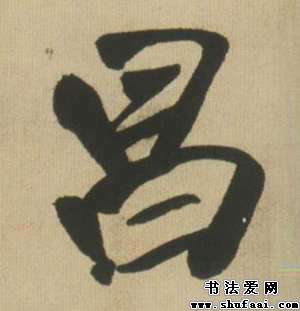 昌
书法爱网
www.shufaai.com